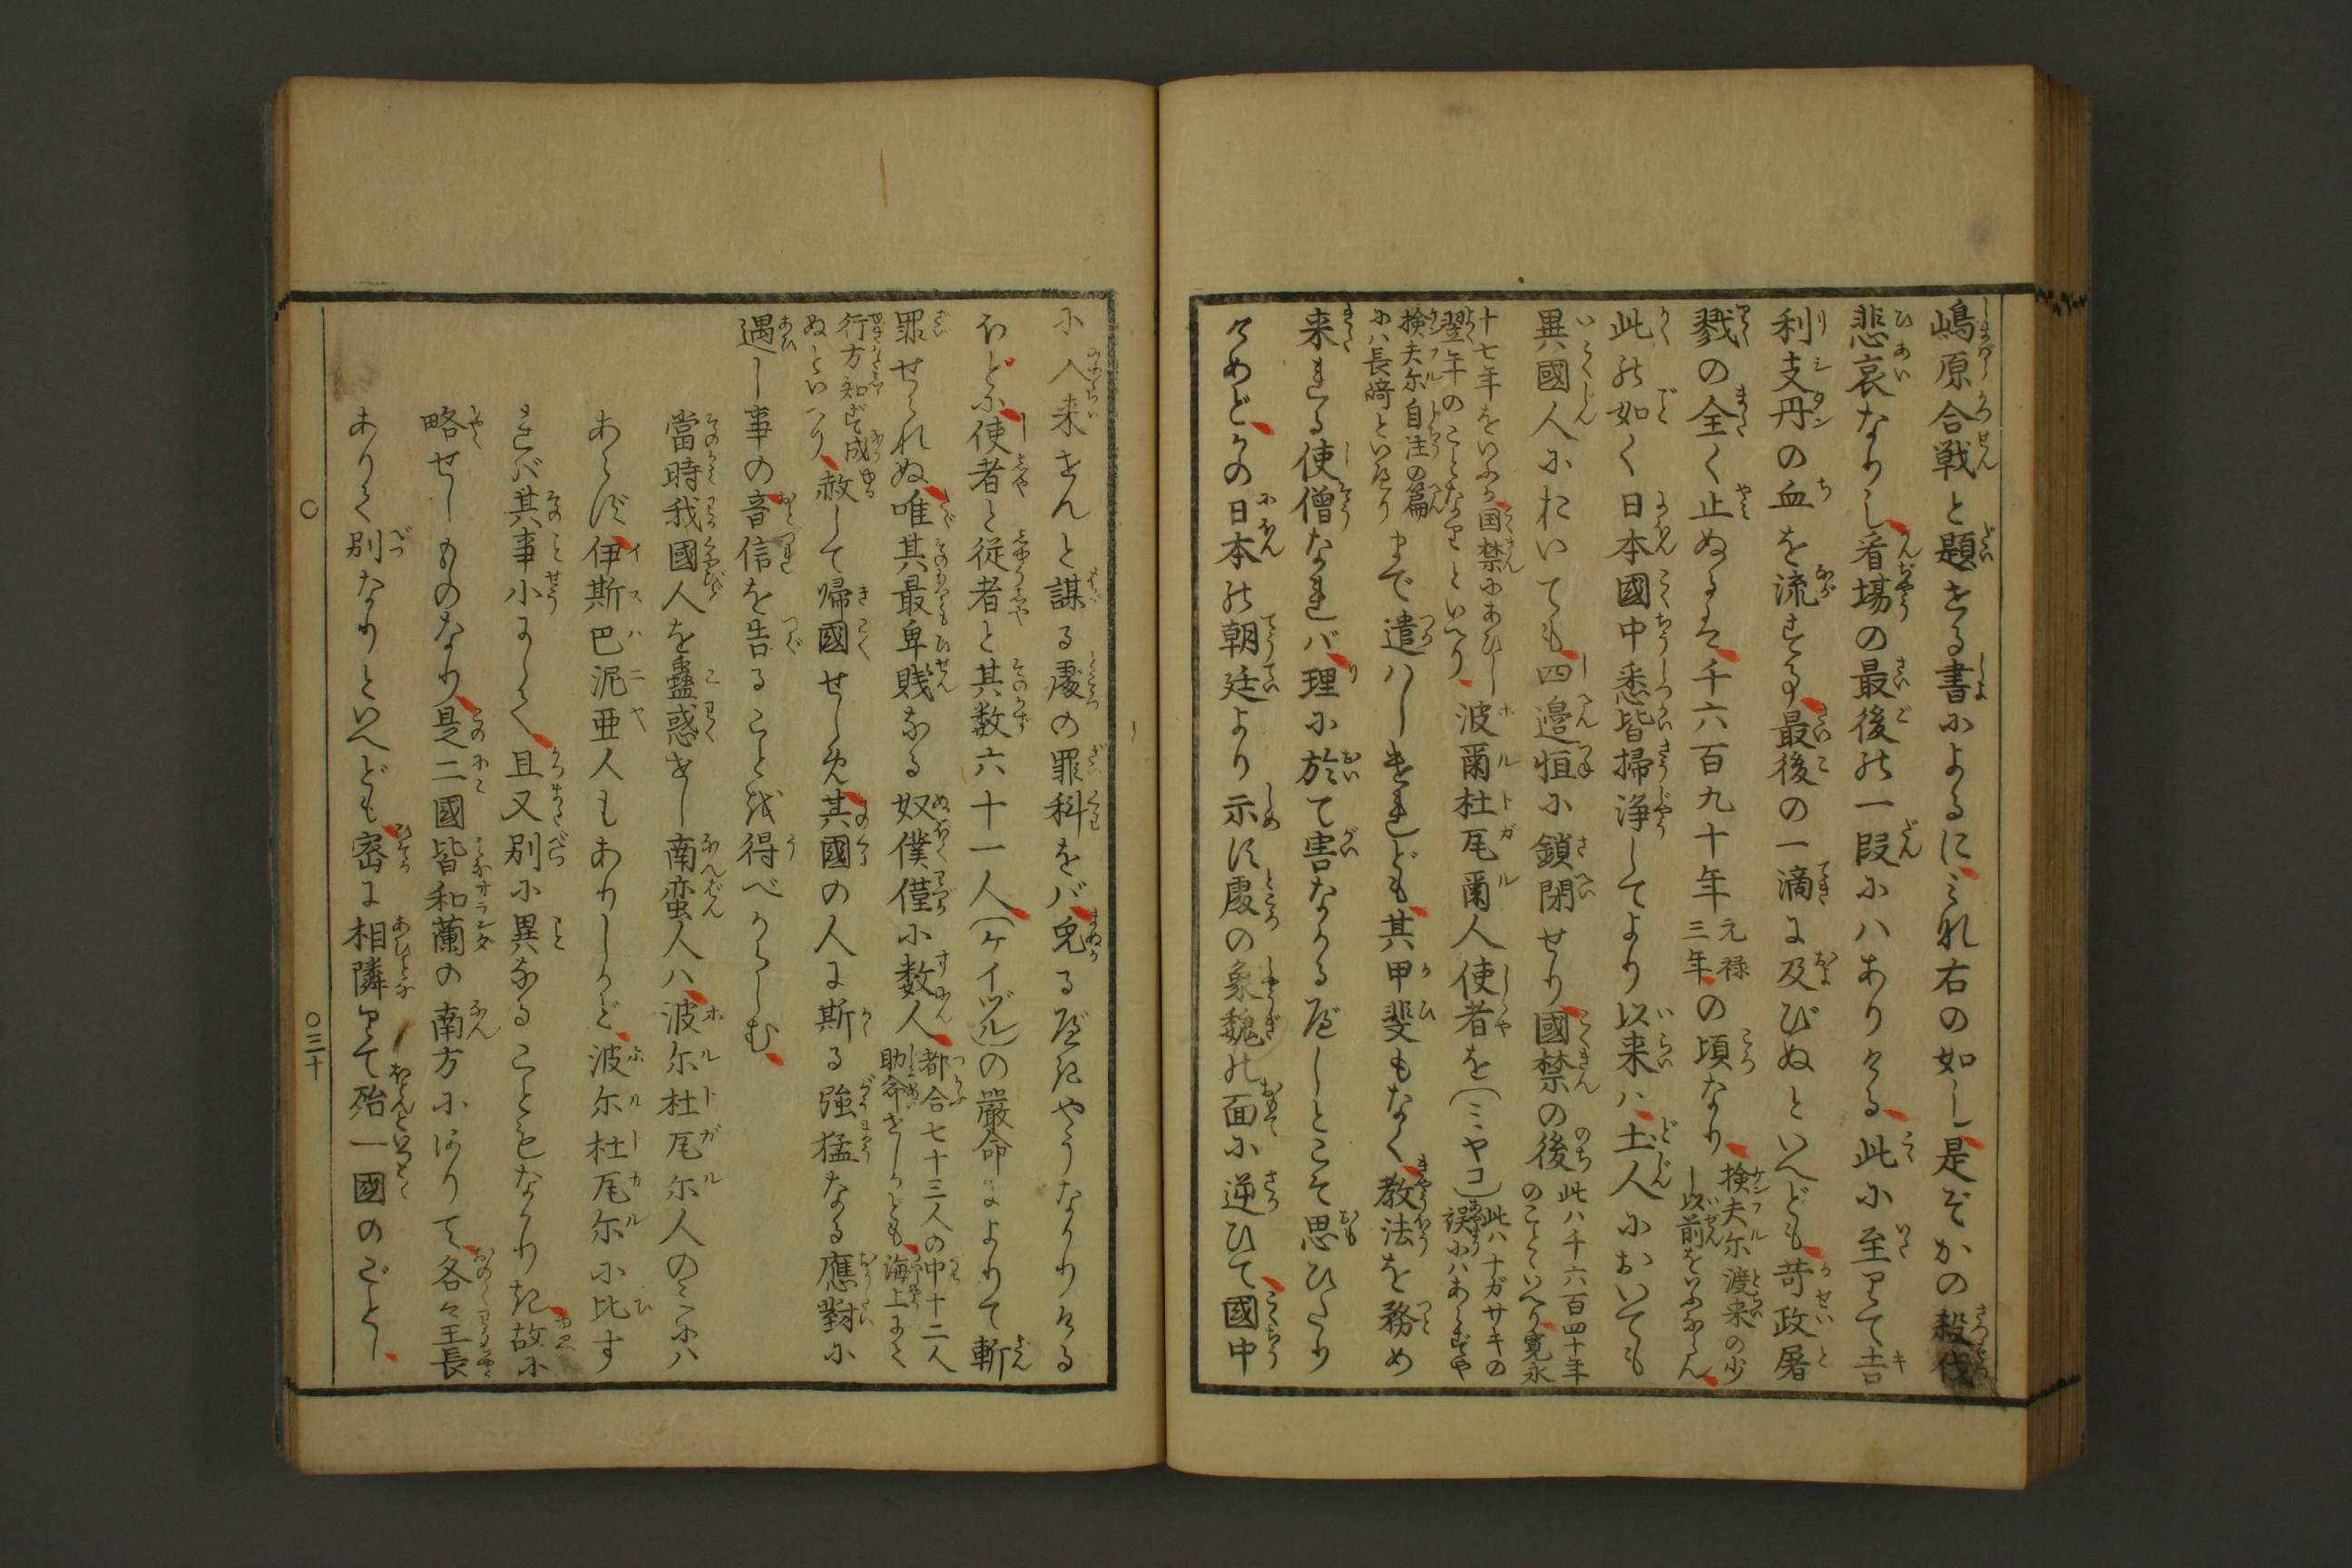 嶋原合戦と題せる書によるにこれ右の如し是ぞかの殺伐
悲哀なりし看場の最後の一段にハありける此に至りて吉
利支丹の血を流せる事最後の一滴に及びぬといへども苛政屠
戮の全く止ぬるは千六百九十年元禄三年の頃なり検夫尓渡来の少し以前をいふならん
此の如く日本國中悉皆掃浄してより以来ハ土人においても
異國人においても四邉恒に鎖閉せり國禁の後此ハ千六百四十年のことゝいへり寛永
十七年をいふか国禁にあひし翌年のことなりといへり波爾杜尾爾人使者を(ミヤコ)此ハナガサキの誤にハあらずや
検夫尓自注の篇にハ長﨑といへりまで遣ハしけれども其甲斐もなく教法を務め
来れる使僧なれバ理に於て害なかるべしとこそ思ひたり
けめどかの日本の朝廷より示す處の象魏の面に逆ひて國中
に入来せんと謀る處の罪科をバ免るべきやうなかりける
ほどに使者と従者と其数六十一人(ケイヅル)の嚴命によりて斬
罪せられぬ唯其最卑賎なる奴僕僅に数人都合七十三人の中十二人助命せしかども海上にて
行方知ず成ぬといへり赦して帰國せしめ其國の人に斯る強猛なる應對に
遇し事の音信を告ることを得べからしむ
當時我國人を蠱惑せし南蛮人ハ波尓杜尾尓人のミにハ
あらず伊斯巴泥亜人もありしかど波尓杜尾尓に比す
れバ其事小にして且又別に異なることもなかりき故に
略せしものなり是二國皆和蘭の南方にありて各々王長
ありて別なりといへども密に相隣りて殆一國のごとし
〇三十